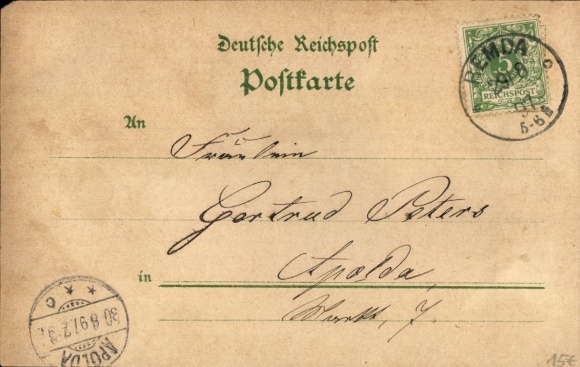 Deutsche Reichspost
Postkarte
REMDA
5
REICHSPOST
5-6
An
Fräulein
Gertrud Peters
in Apolda,
Markt, 7.
APOLDA
30 8 97
15€